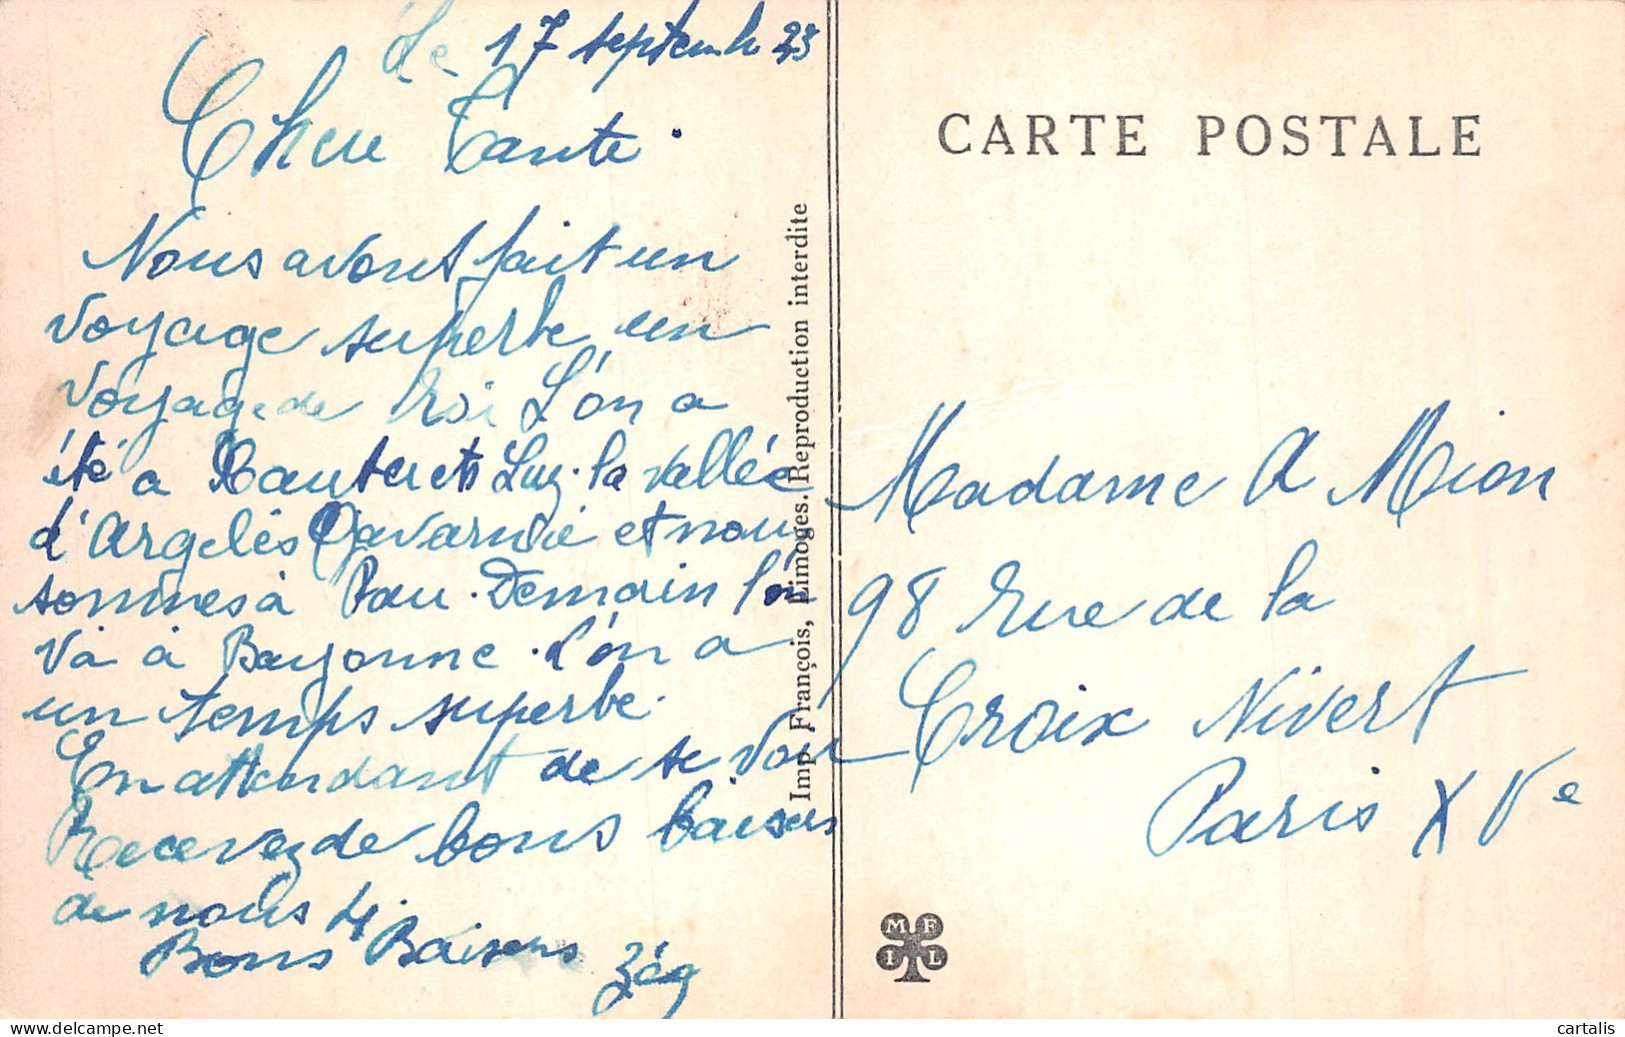 Le 17 septemb 23
Chere Tante.
Nous avont fait un
voyage superbe un
voyage de roi L'on a
été a Cauterets Luz. la vallée
d'Argelès Gavarnie et nous
sommes à Pau. Demain l'on
va à Bayonne. l'on a
un temps superbe.
En attendant de se voir
Recevez de bons baisers
de nous 4.
Bons Baisers
Imp. François, Limoges. Reproduction interdite
CARTE POSTALE
Madame A Mion
98 rue de la
Croix Nivert
Paris XVe
M F
I L
cartalis
www.delcampe.net